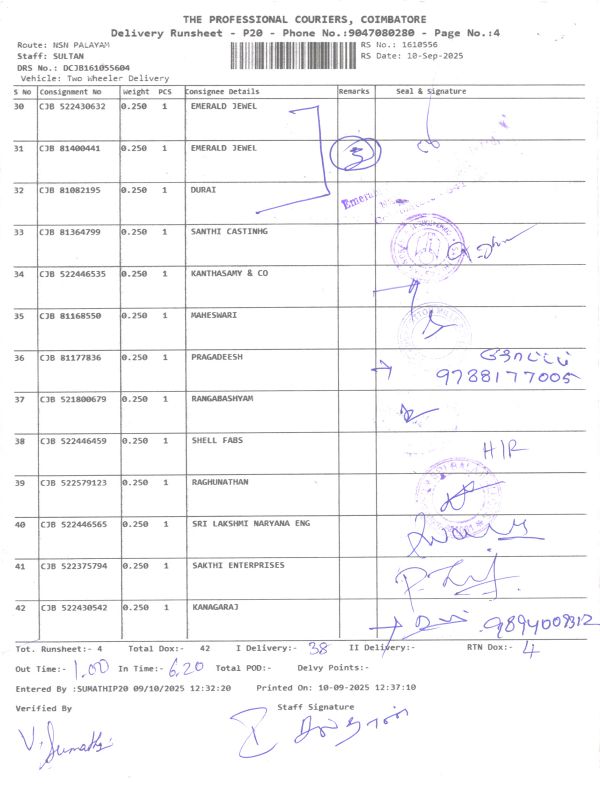 THE PROFESSIONAL COURIERS, COIMBATORE
Delivery Runsheet - P20 - Phone No.:9047080280 - Page No.:4
Route: NSN PALAYAM
RS No.: 1610556
Staff: SULTAN
RS Date: 10-Sep-2025
DRS No.: DCJB161055604
Vehicle: Two Wheeler Delivery
S No Consignment No Weight PCS Consignee Details Remarks Seal & Signature
30 CJB 522430632 0.250 1 EMERALD JEWEL
31 CJB 81400441 0.250 1 EMERALD JEWEL 3
32 CJB 81082195 0.250 1 DURAI
33 CJB 81364799 0.250 1 SANTHI CASTINHG
34 CJB 522446535 0.250 1 KANTHASAMY & CO
35 CJB 81168550 0.250 1 MAHESWARI
36 CJB 81177836 0.250 1 PRAGADEESH
9788177005
37 CJB 521800679 0.250 1 RANGABASHYAM
38 CJB 522446459 0.250 1 SHELL FABS H/R
39 CJB 522579123 0.250 1 RAGHUNATHAN
40 CJB 522446565 0.250 1 SRI LAKSHMI NARYANA ENG
41 CJB 522375794 0.250 1 SAKTHI ENTERPRISES
42 CJB 522430542 0.250 1 KANAGARAJ 9894009312
Tot. Runsheet:- 4 Total Dox:- 42 I Delivery:- 38 II Delivery:- RTN Dox:- 4
Out Time:- 1.00 In Time:- 6.20 Total POD:- Delvy Points:-
Entered By :SUMATHIP20 09/10/2025 12:32:20 Printed On: 10-09-2025 12:37:10
Verified By Staff Signature
V. Sumathi